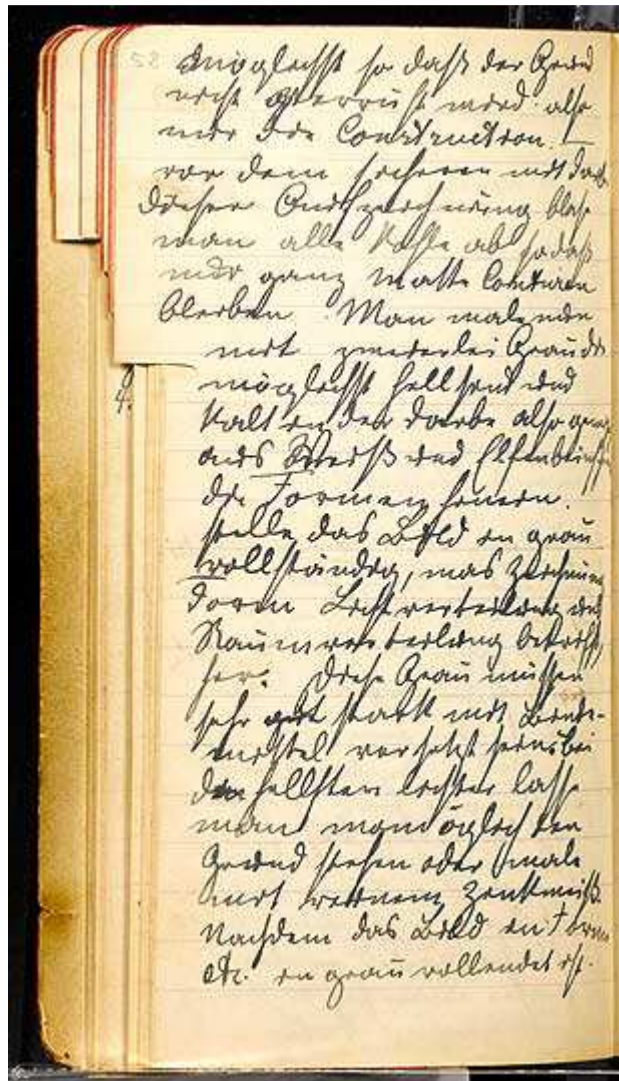 58 möglichst so daß der Grund
nicht verwischt wird. also
nur die Construction. –
vor dem sicheren mit Tusche
dieser Aufzeichnung blase
man alle Kohle ab so daß
nur ganz matte Conturen
bleiben. Man male nun
mit zweierlei Grau die
möglichst hell sind und
4. Kalt in der Farbe also ganz
aus Weiß und Elfenbein
die Formen hinein.
stelle das Bild in grau
vollständig, was Zeichnung
Form Lichtverteilung und
Raumverteilung betrifft,
her. Diese Grau müssen
sehr gut stark mit Binde-
mittel versetzt sein. bei
den hellsten Lichter lasse
man womöglich den
Grund stehen oder male
mit reinem Zinkweiß.
Nachdem das Bild in Form
etc. in grau vollendet ist.